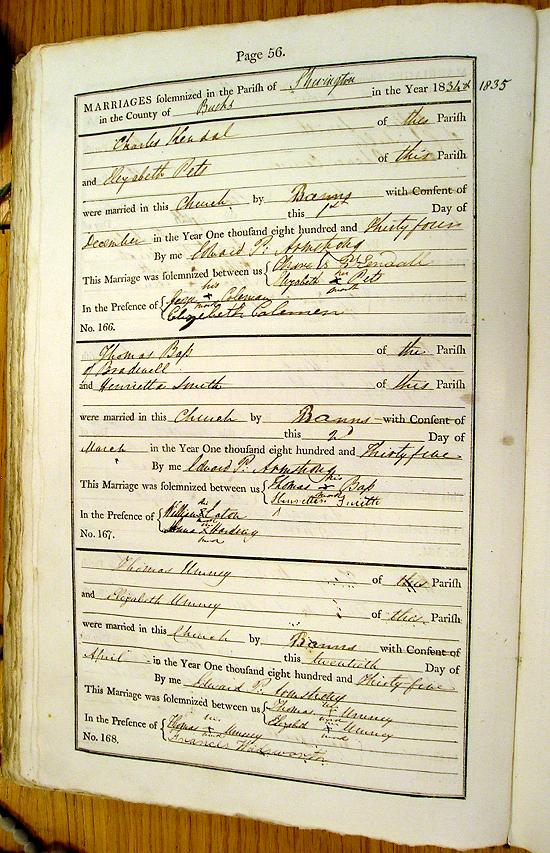 Page 56.
MARRIAGES solemnized in the Parish of Sherington
in the County of Bucks in the Year 1834 & 1835
Charles Kendal of this Parish
and Elizabeth Pets of this Parish
were married in this Church by Banns with Consent of
this 1st Day of
December in the Year One thousand eight hundred and Thirty four
By me Edward P. Armstrong
This Marriage was solemnized between us Charles Kendall
Elizabeth her x mark Pets
In the Presence of his x mark Coleman
Elizabeth Colemen
No. 166.
Thomas Bass of the Parish
of Bradwell
and Henrietta Smith of this Parish
were married in this Church by Banns with Consent of
this 2d Day of
March in the Year One thousand eight hundred and Thirty five
By me Edward P. Armstrong
This Marriage was solemnized between us Thomas his x mark Bass
Henrietta Smith
In the Presence of William his x Eaton
Anna her x mark Harding
No. 167.
Thomas Umney of this Parish
and Elizabeth Umney of this Parish
were married in this Church by Banns with Consent of
this twentieth Day of
April in the Year One thousand eight hundred and Thirty five
By me Edward P. Armstrong
This Marriage was solemnized between us Thomas his x mark Umney
Elizabeth her x mark Umney
In the Presence of Thomas his x mark Umney
Francis Wadsworth
No. 168.